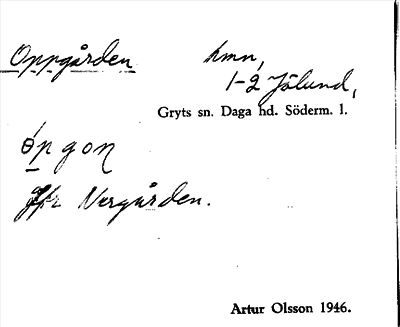 Oppgården hmn,
1-2 Jölund,
Gryts sn. Daga hd. Söderm. l.
ǿpgon
Jfr Nergården.
Artur Olsson 1946.